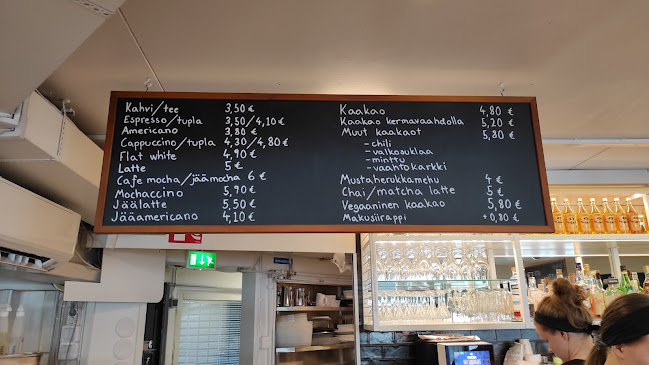 Kahvi/tee 3,50 €
Espresso/tupla 3,50/4,10 €
Americano 3,80 €
Cappuccino/tupla 4,30/4,80 €
Flat white 4,90 €
Latte 5 €
Cafe mocha/jäämocha 6 €
Mochaccino 5,90 €
Jäälatte 5,50 €
Jääamericano 4,10 €
Kaakao 4,80 €
Kaakao kermavaahdolla 5,20 €
Muut kaakaot 5,80 €
- chili
- valkosuklaa
- minttu
- vaahtokarkki
Mustaherukkamehu 4 €
Chai/matcha latte 5 €
Vegaaninen kaakao 5,80 €
Makusiirappi +0,80 €